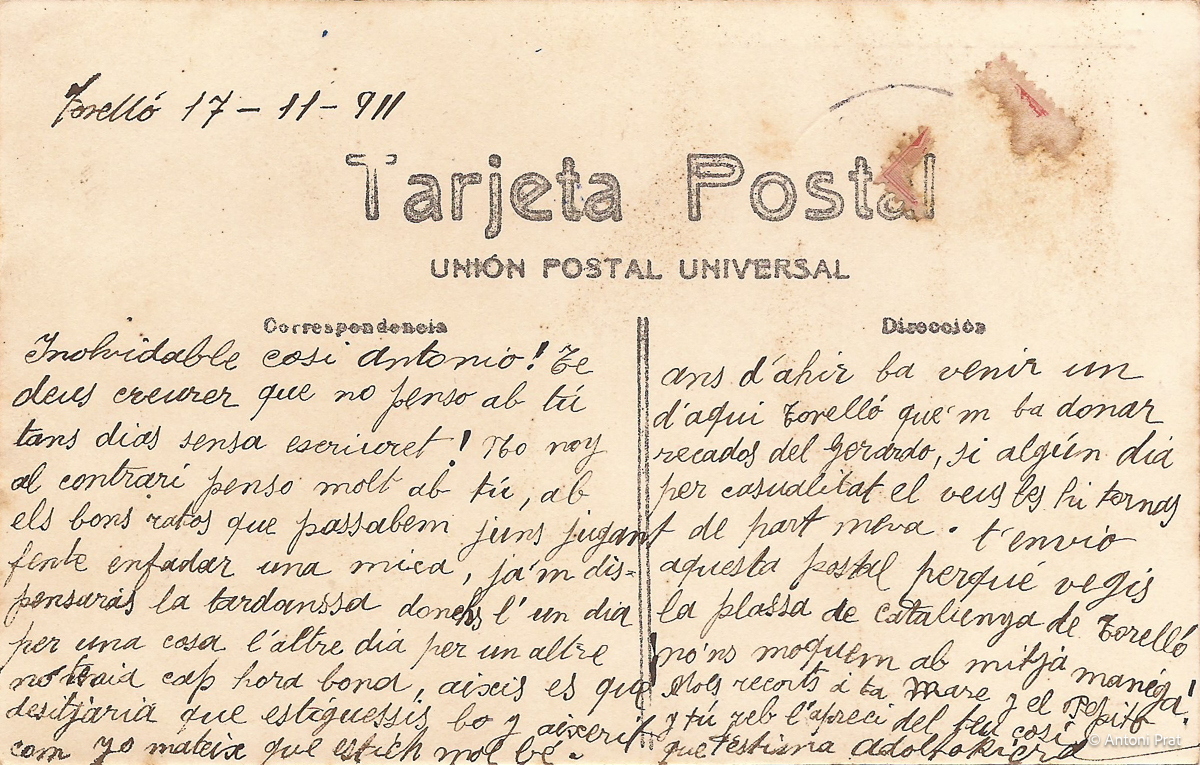 Torelló 17-11-911
Tarjeta Postal
UNIÓN POSTAL UNIVERSAL
Correspondencia
Dirección
Inolvidable cosi Antonio! Te
deus creurer que no penso ab tú
tans dias sensa escriuret! No noy
al contrari penso molt ab tú, ab
els bons ratos que passabem juns jugant
fente enfadar una mica, ja'm dis-
pensarás la tardanssa donchs l'un dia
per una cosa l'altre dia per un altre
no tenia cap hora bona, aixis es que
desitjaria que estiguessis bo y aixerit
com yo mateix que estich mol bé.
ans d'ahir ba venir un
d'aqui Torelló que'm ba donar
recados del Gerardo, si algún dia
per casualitat el veus les hi tornas
de part meva. t'envio
aquesta postal perqué vegis
la plassa de Catalunya de Torelló
no'ns moquem ab mitja manéga!
Mols recorts á ta Mare y el Pepito
y tú reb l'apreci del teu cosi
que t'estima Adolfo Riera
© Antoni Prat